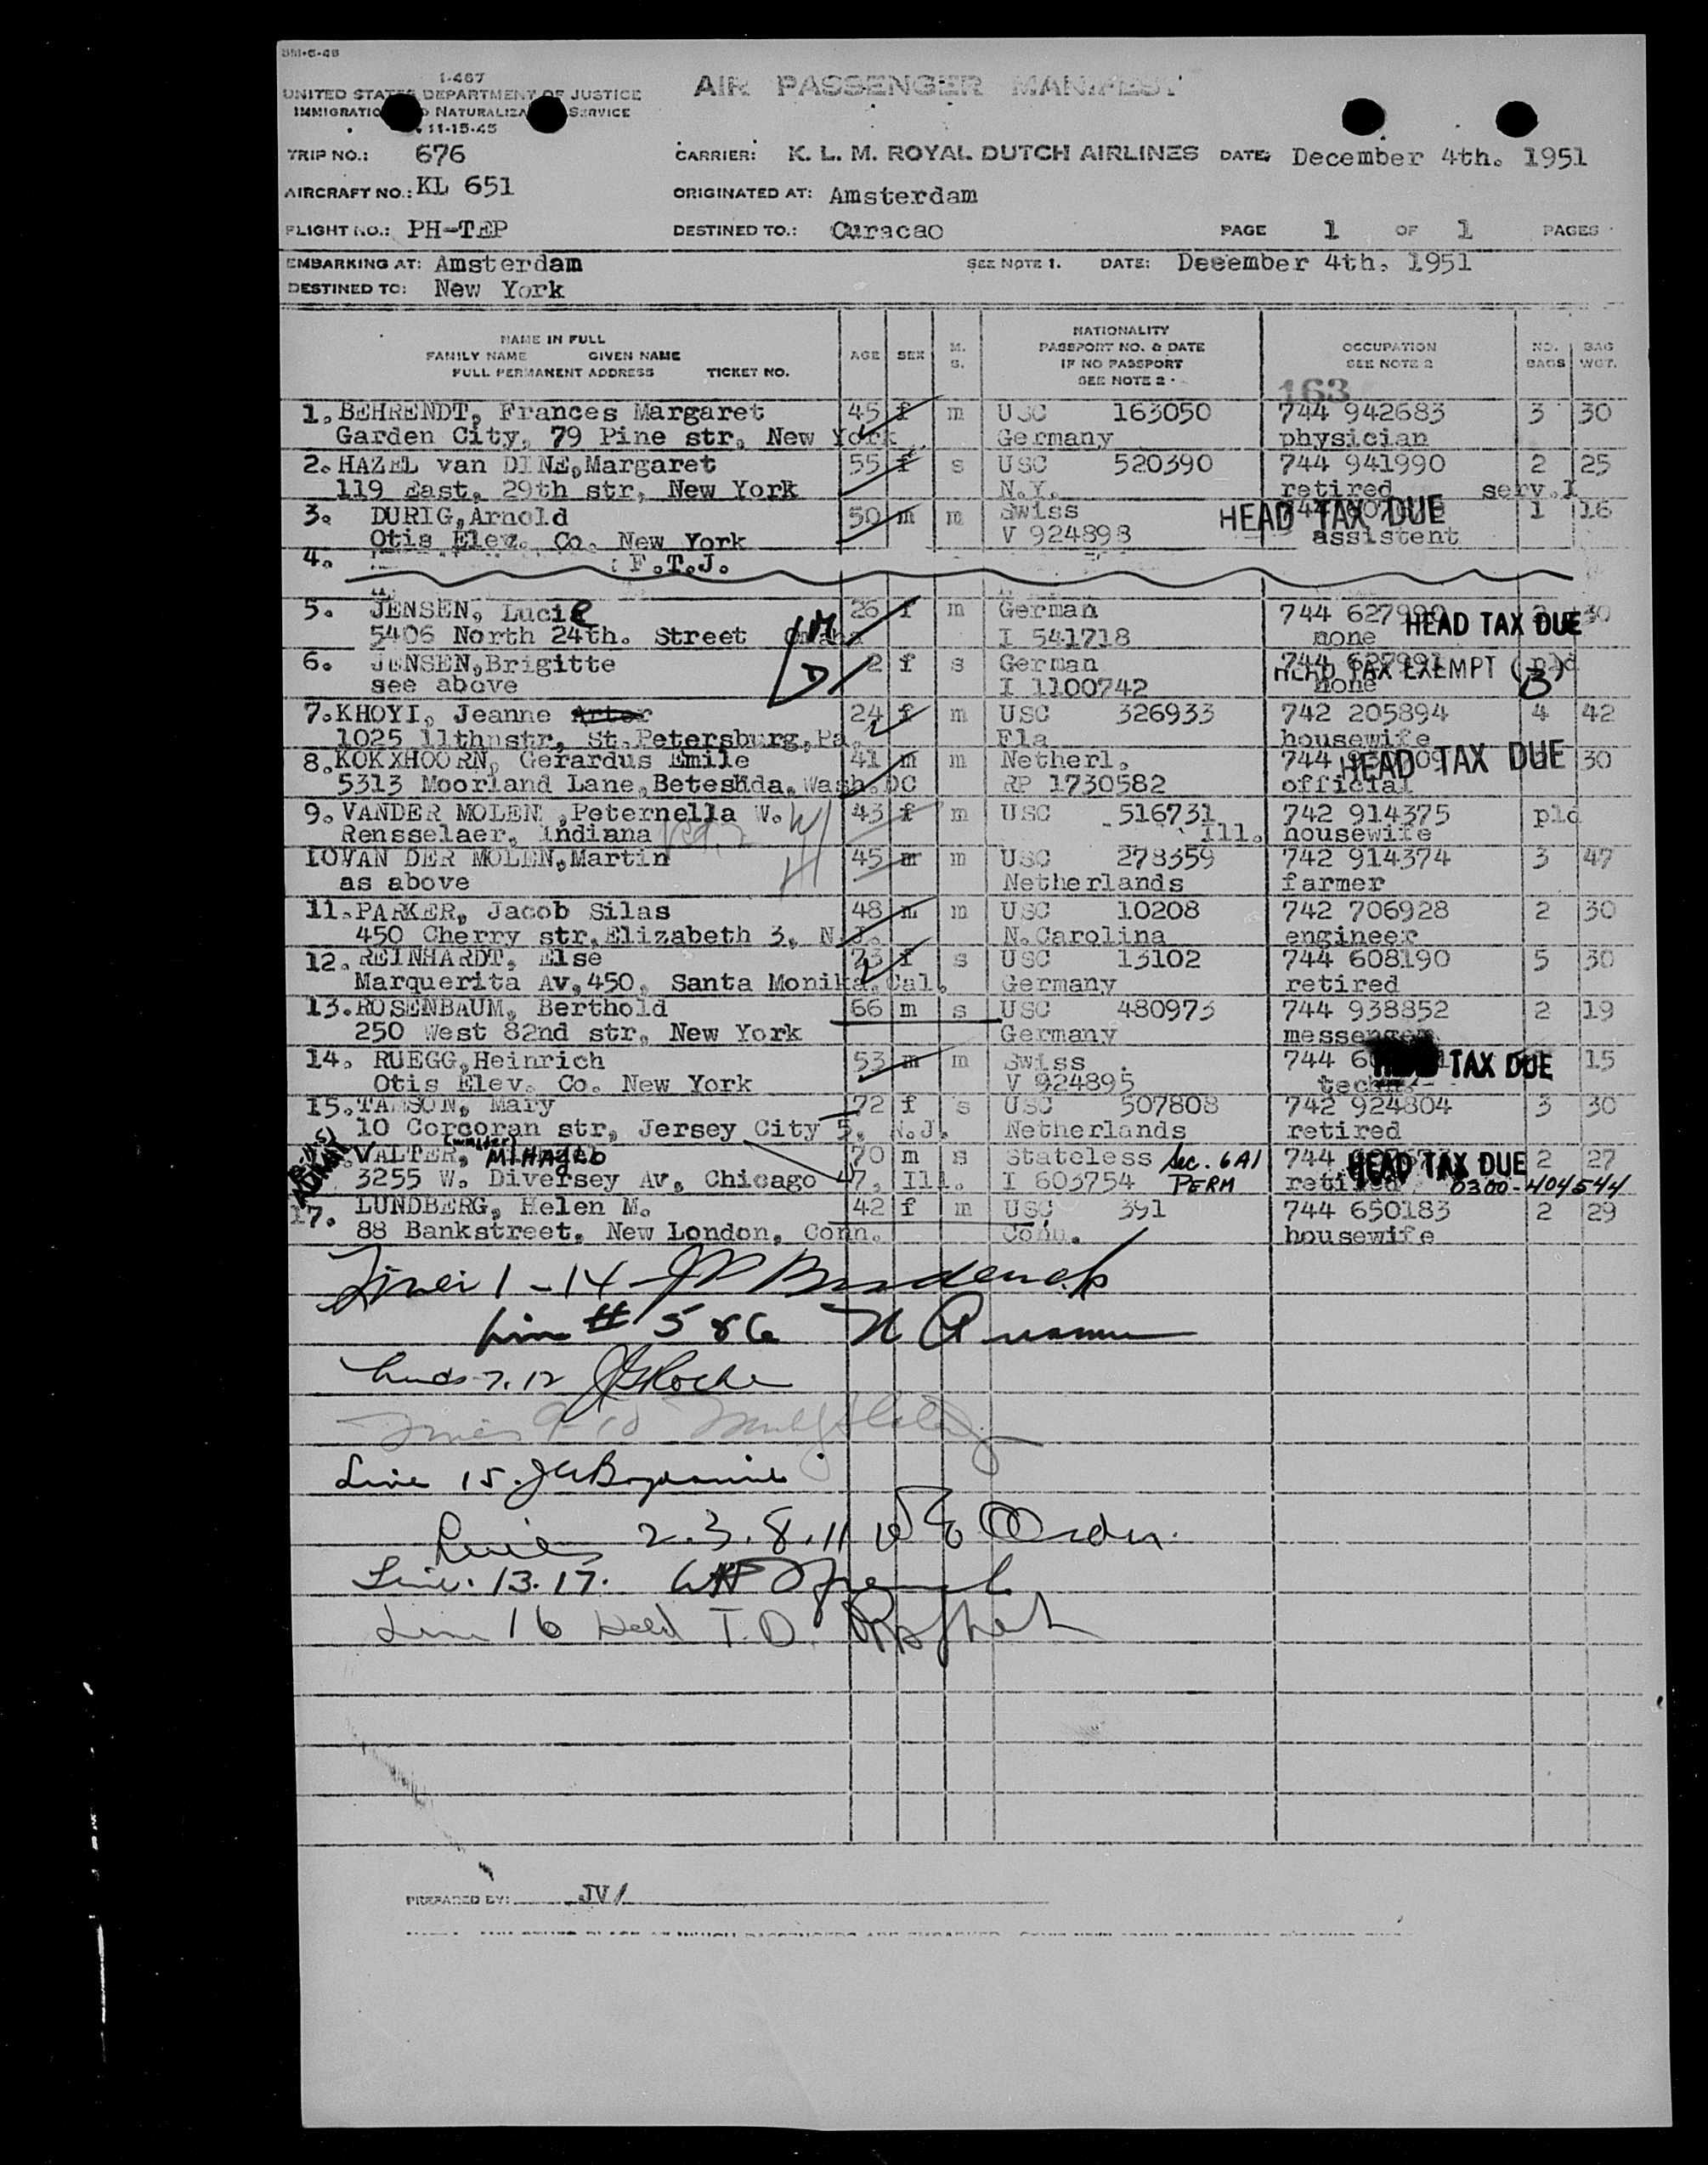 I-467
UNITED STATES DEPARTMENT OF JUSTICE
IMMIGRATION NATURALIZA SERVICE
11-15-45
AIR PASSENGER MANIFEST
TRIP NO.: 676 CARRIER: K. L. M. ROYAL DUTCH AIRLINES DATE: December 4th. 1951
AIRCRAFT NO.: KL 651 ORIGINATED AT: Amsterdam
FLIGHT NO.: PH-TEP DESTINED TO.: Curacao PAGE 1 OF 1 PAGES
EMBARKING AT: Amsterdam SEE NOTE 1. DATE: December 4th. 1951
DESTINED TO: New York
NAME IN FULL
FAMILY NAME GIVEN NAME
FULL PERMANENT ADDRESS TICKET NO.
AGE SEX M. S.
NATIONALITY
PASSPORT NO. & DATE
IF NO PASSPORT
SEE NOTE 2
OCCUPATION
SEE NOTE 2
NO. BAGS BAG WGT.
163
1. BEHRENDT, Frances Margaret 45 f m USC 163050 744 942683 3 30
Garden City, 79 Pine str, New York Germany physician
2. HAZEL van DINE, Margaret 55 f s USC 520390 744 941990 2 25
119 East, 29th str, New York N.Y. retired serv.1
3. DURIG, Arnold 50 m m Swiss HEAD TAX DUE 1 16
Otis Elev. Co. New York V 924898 assistent
4. F.T.J.
5. JENSEN, Lucie 26 f m German 744 HEAD TAX DUE 30
5406 North 24th. Street Omaha I 541718 none
6. JENSEN, Brigitte 2 f s German 744 627991 pld
HEAD TAX EXEMPT (3)
see above I 1100742 none
7. KHOYI, Jeanne 24 f m USC 326933 742 205894 4 42
1025 11thnstr, St.Petersburg, Pa. Fla housewife
8. KOKXHOORN, Gerardus Emile 41 m m Netherl. 744 HEAD TAX DUE 30
5313 Moorland Lane, Beteshda, Wash.DC RP 1730582 official
9. VANDER MOLEN, Peternella W. 43 f m USC 516731 742 914375 pld
Rensselaer, Indiana Ill. housewife
10 VAN DER MOLEN, Martin 45 m m USC 278359 742 914374 3 47
as above Netherlands farmer
11. PARKER, Jacob Silas 48 m m USC 10208 742 706928 2 30
450 Cherry str, Elizabeth 3, N.J. N.Carolina engineer
12. REINHARDT, Else 73 f s USC 13102 744 608190 5 30
Marquerita Av, 450, Santa Monika, Cal. Germany retired
13. ROSENBAUM, Berthold 66 m s USC 480973 744 938852 2 19
250 West 82nd str, New York Germany messenger
14. RUEGG, Heinrich 53 m m Swiss 744 TAX DUE 15
Otis Elev. Co. New York V 924895
15. TAMSON, Mary 72 f s USC 507808 742 924804 3 30
10 Corcoran str, Jersey City 5, N.J. Netherlands retired
VALTER, MIHAJLO 70 m s Stateless Sec. 6A1 744 HEAD TAX DUE 2 27
3255 W. Diversey Av, Chicago 47, Ill. I 603754 PERM retired 0300-404544
17. LUNDBERG, Helen M. 42 f m USC 391 744 650183 2 29
88 Bankstreet, New London, Conn. Conn. housewife
Lines 1-14
Line # 5 & 6
Lines 7, 12 Roche
Lines 9-10
Line 15.
Lines 2.3.8.11
Line. 13.17.
Line 16 Held T.D.
PREPARED BY: JV/